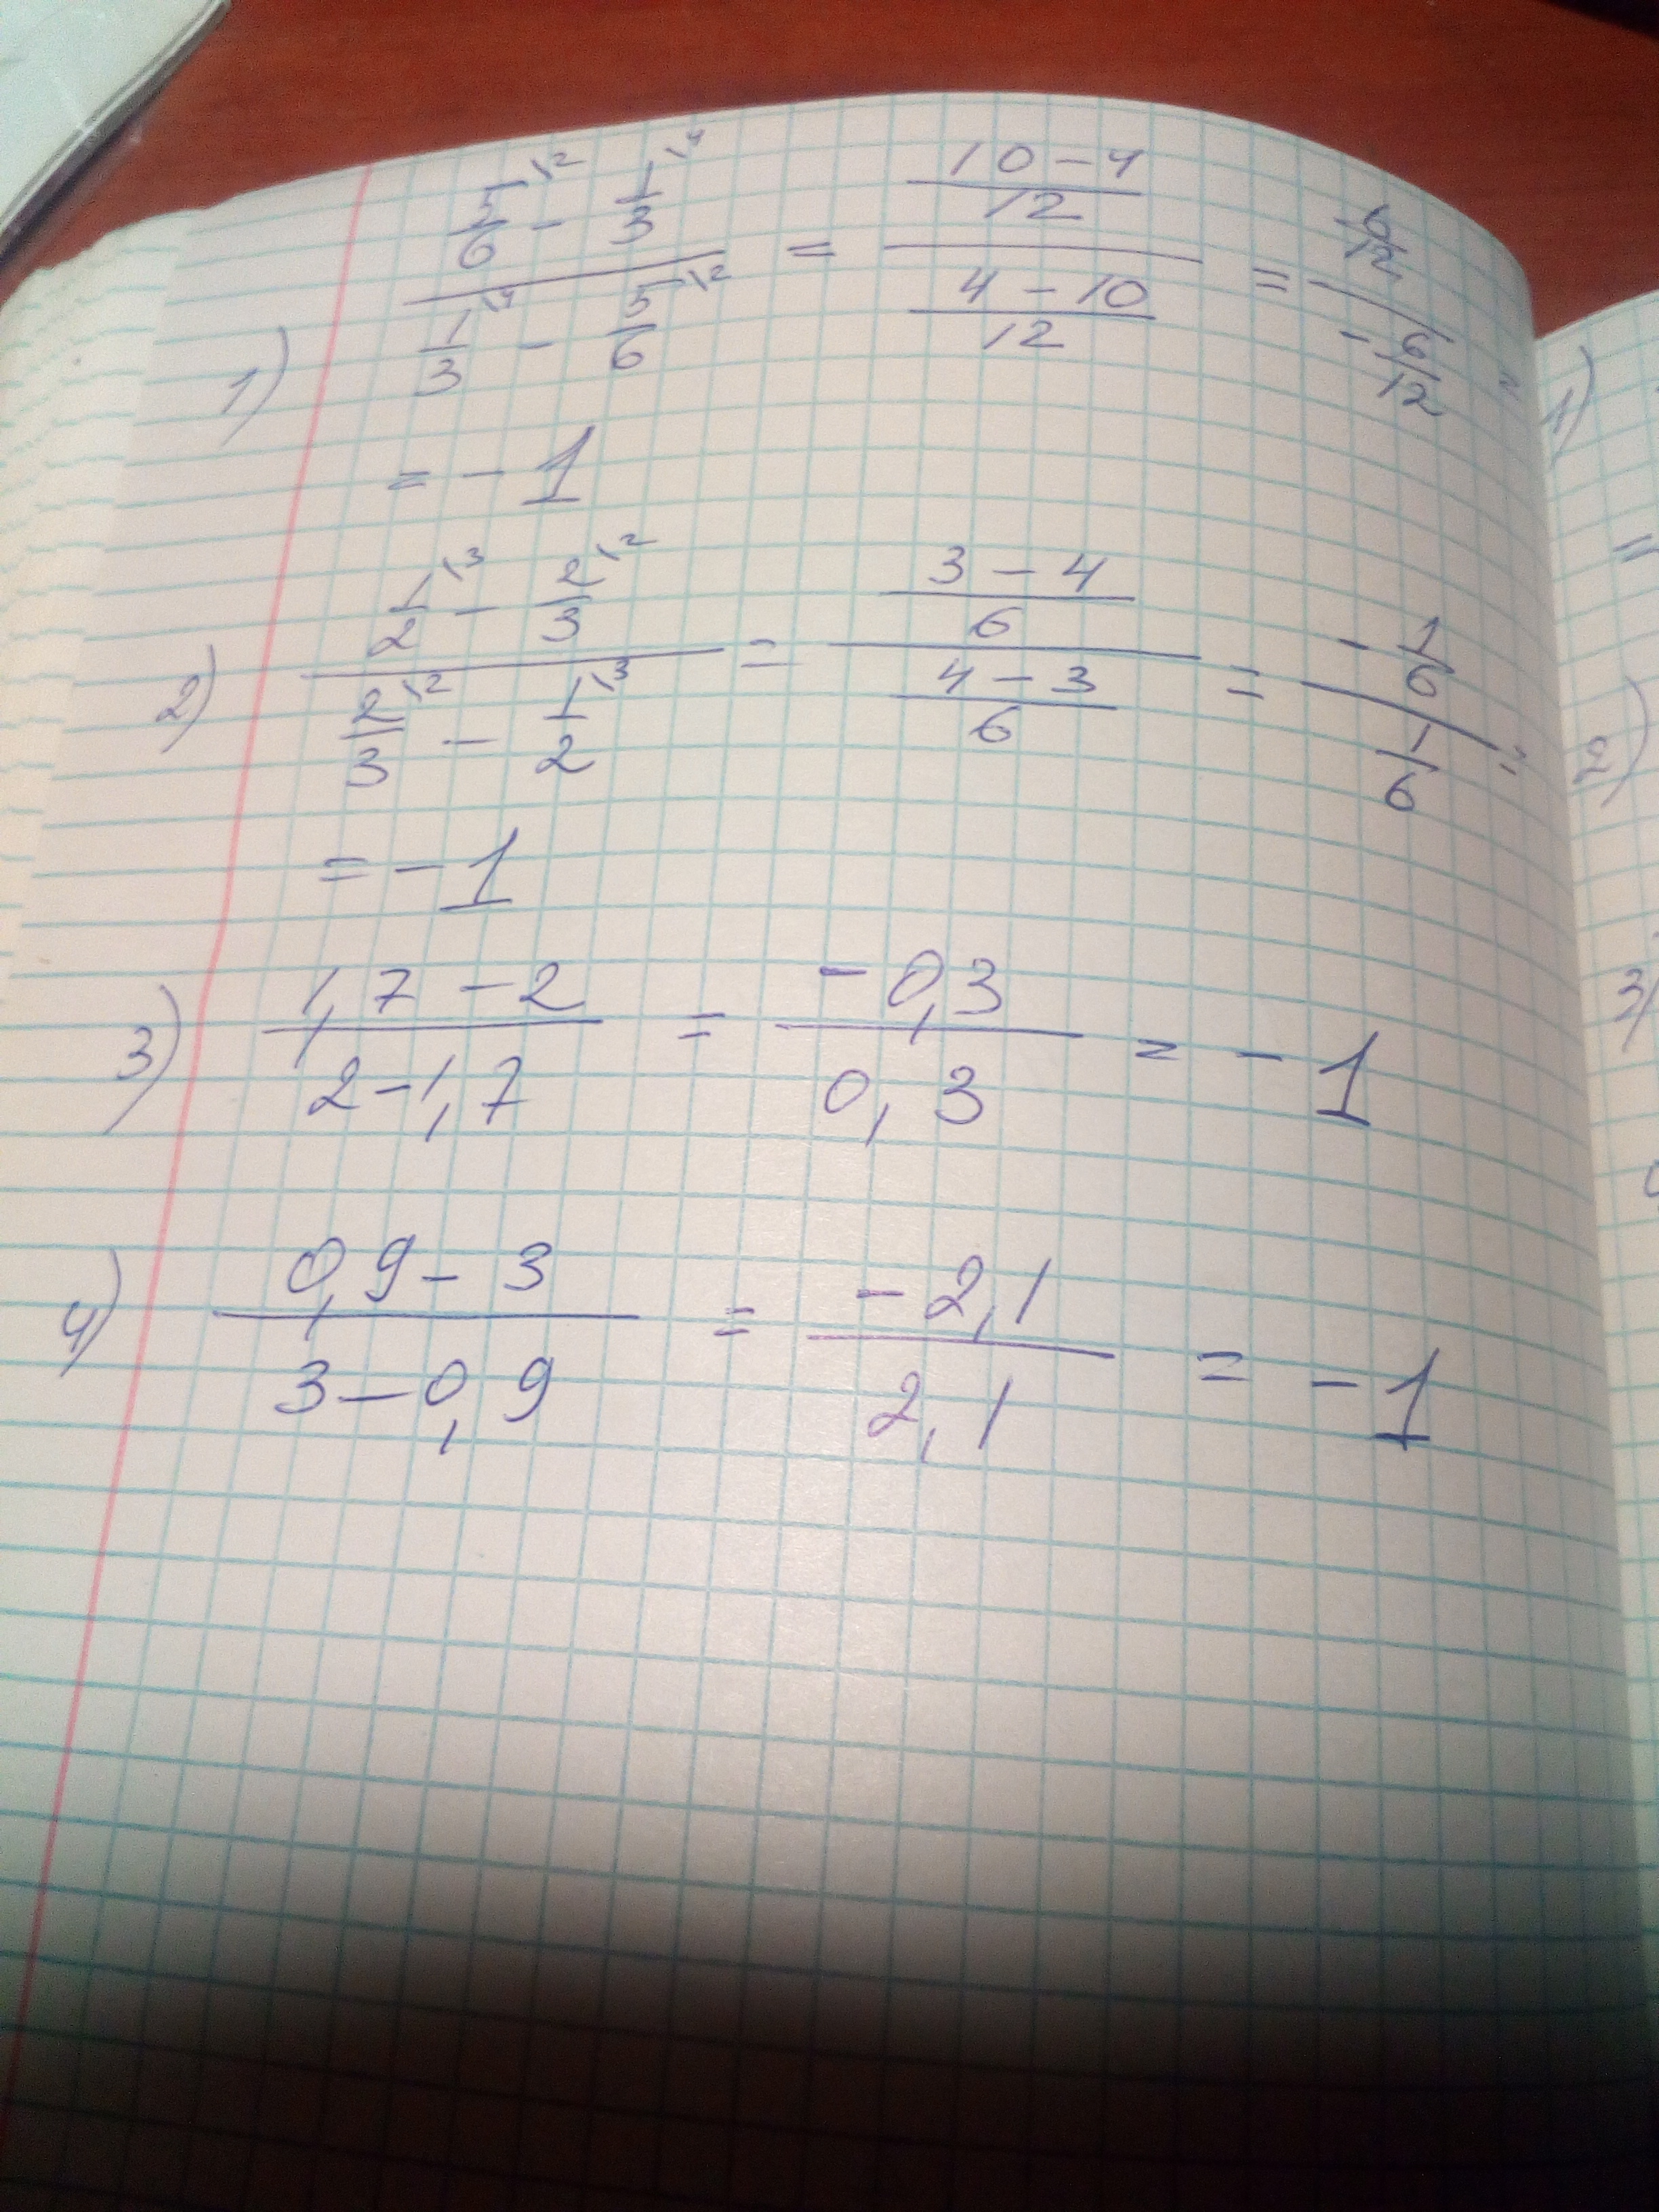 1) (5/6\2 - 1/3\4) / (1/3\4 - 5/6\2) = ((10-4)/12) / ((4-10)/12) = (6/12) / (-6/12) =
= -1
2) (1/2\3 - 2/3\2) / (2/3\2 - 1/2\3) = ((3-4)/6) / ((4-3)/6) = (-1/6) / (1/6) =
= -1
3) (1,7-2) / (2-1,7) = (-0,3) / (0,3) = -1
4) (0,9-3) / (3-0,9) = (-2,1) / (2,1) = -1
1)
=
2)
3)